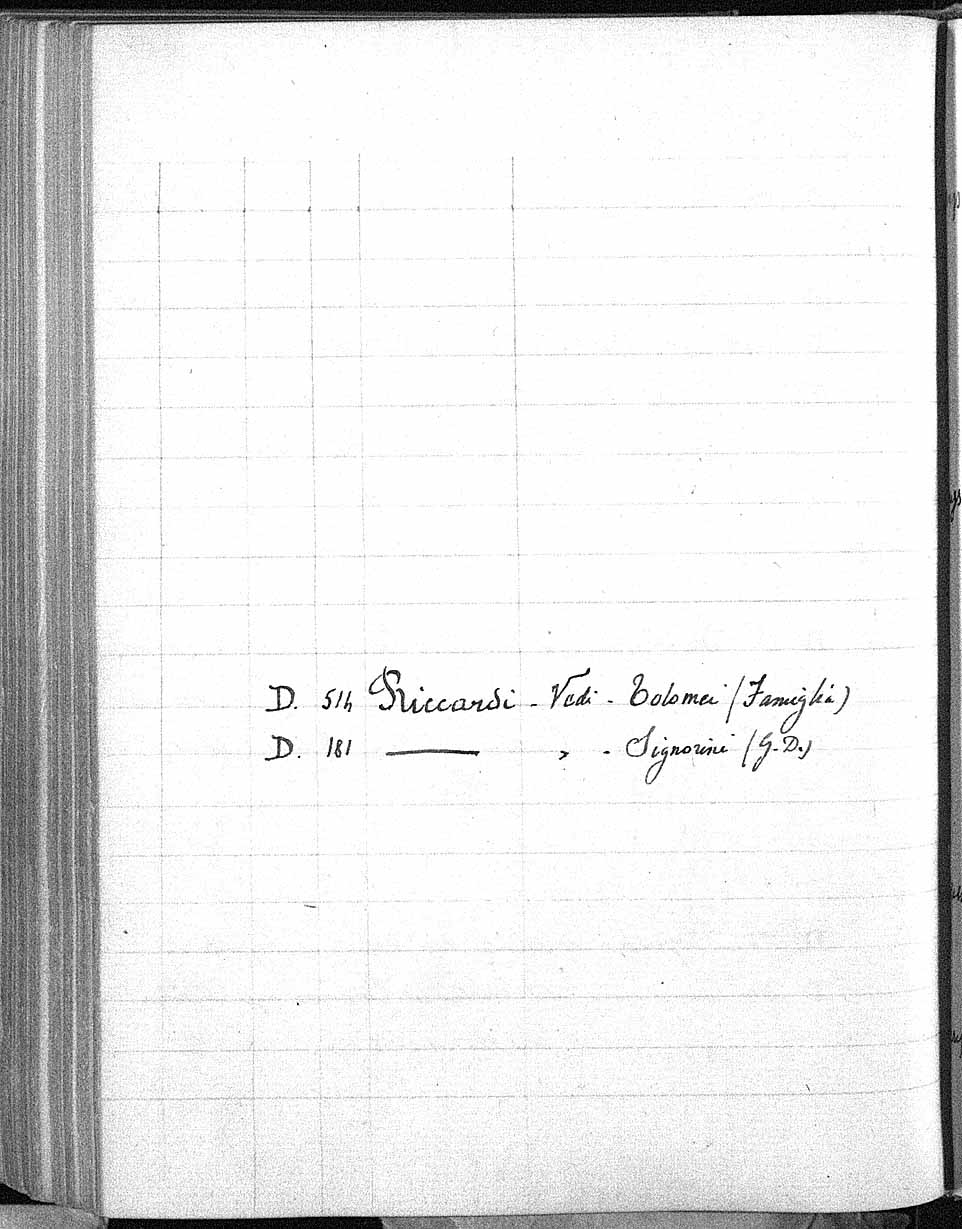 D. 514 Riccardi - Vedi - Tolomei (Famiglia)
D. 181 ——— » - Signorini (G. D.)